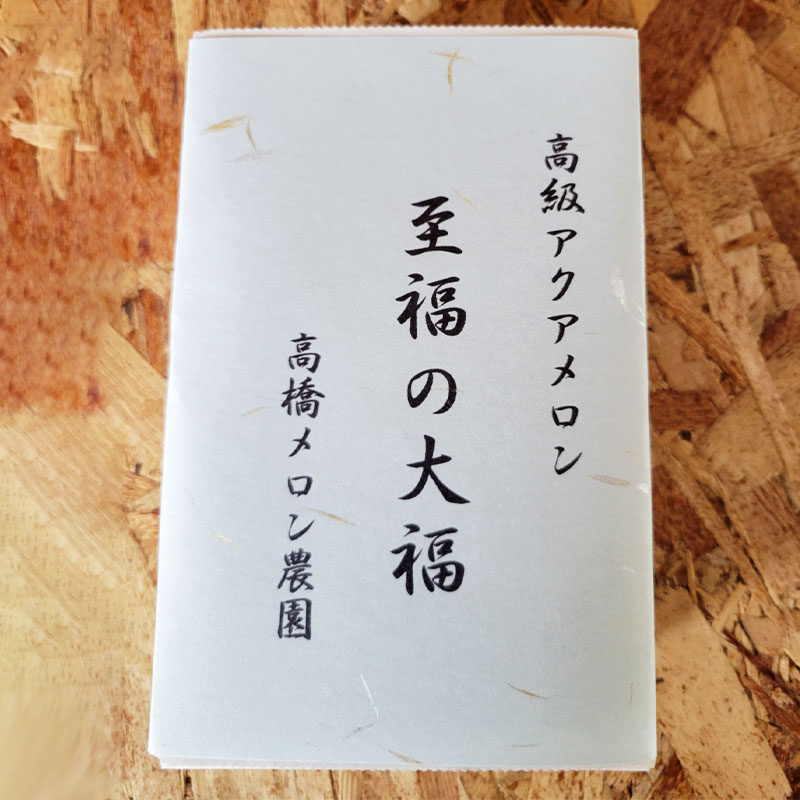 高級アクアメロン
至福の大福
高橋メロン農園